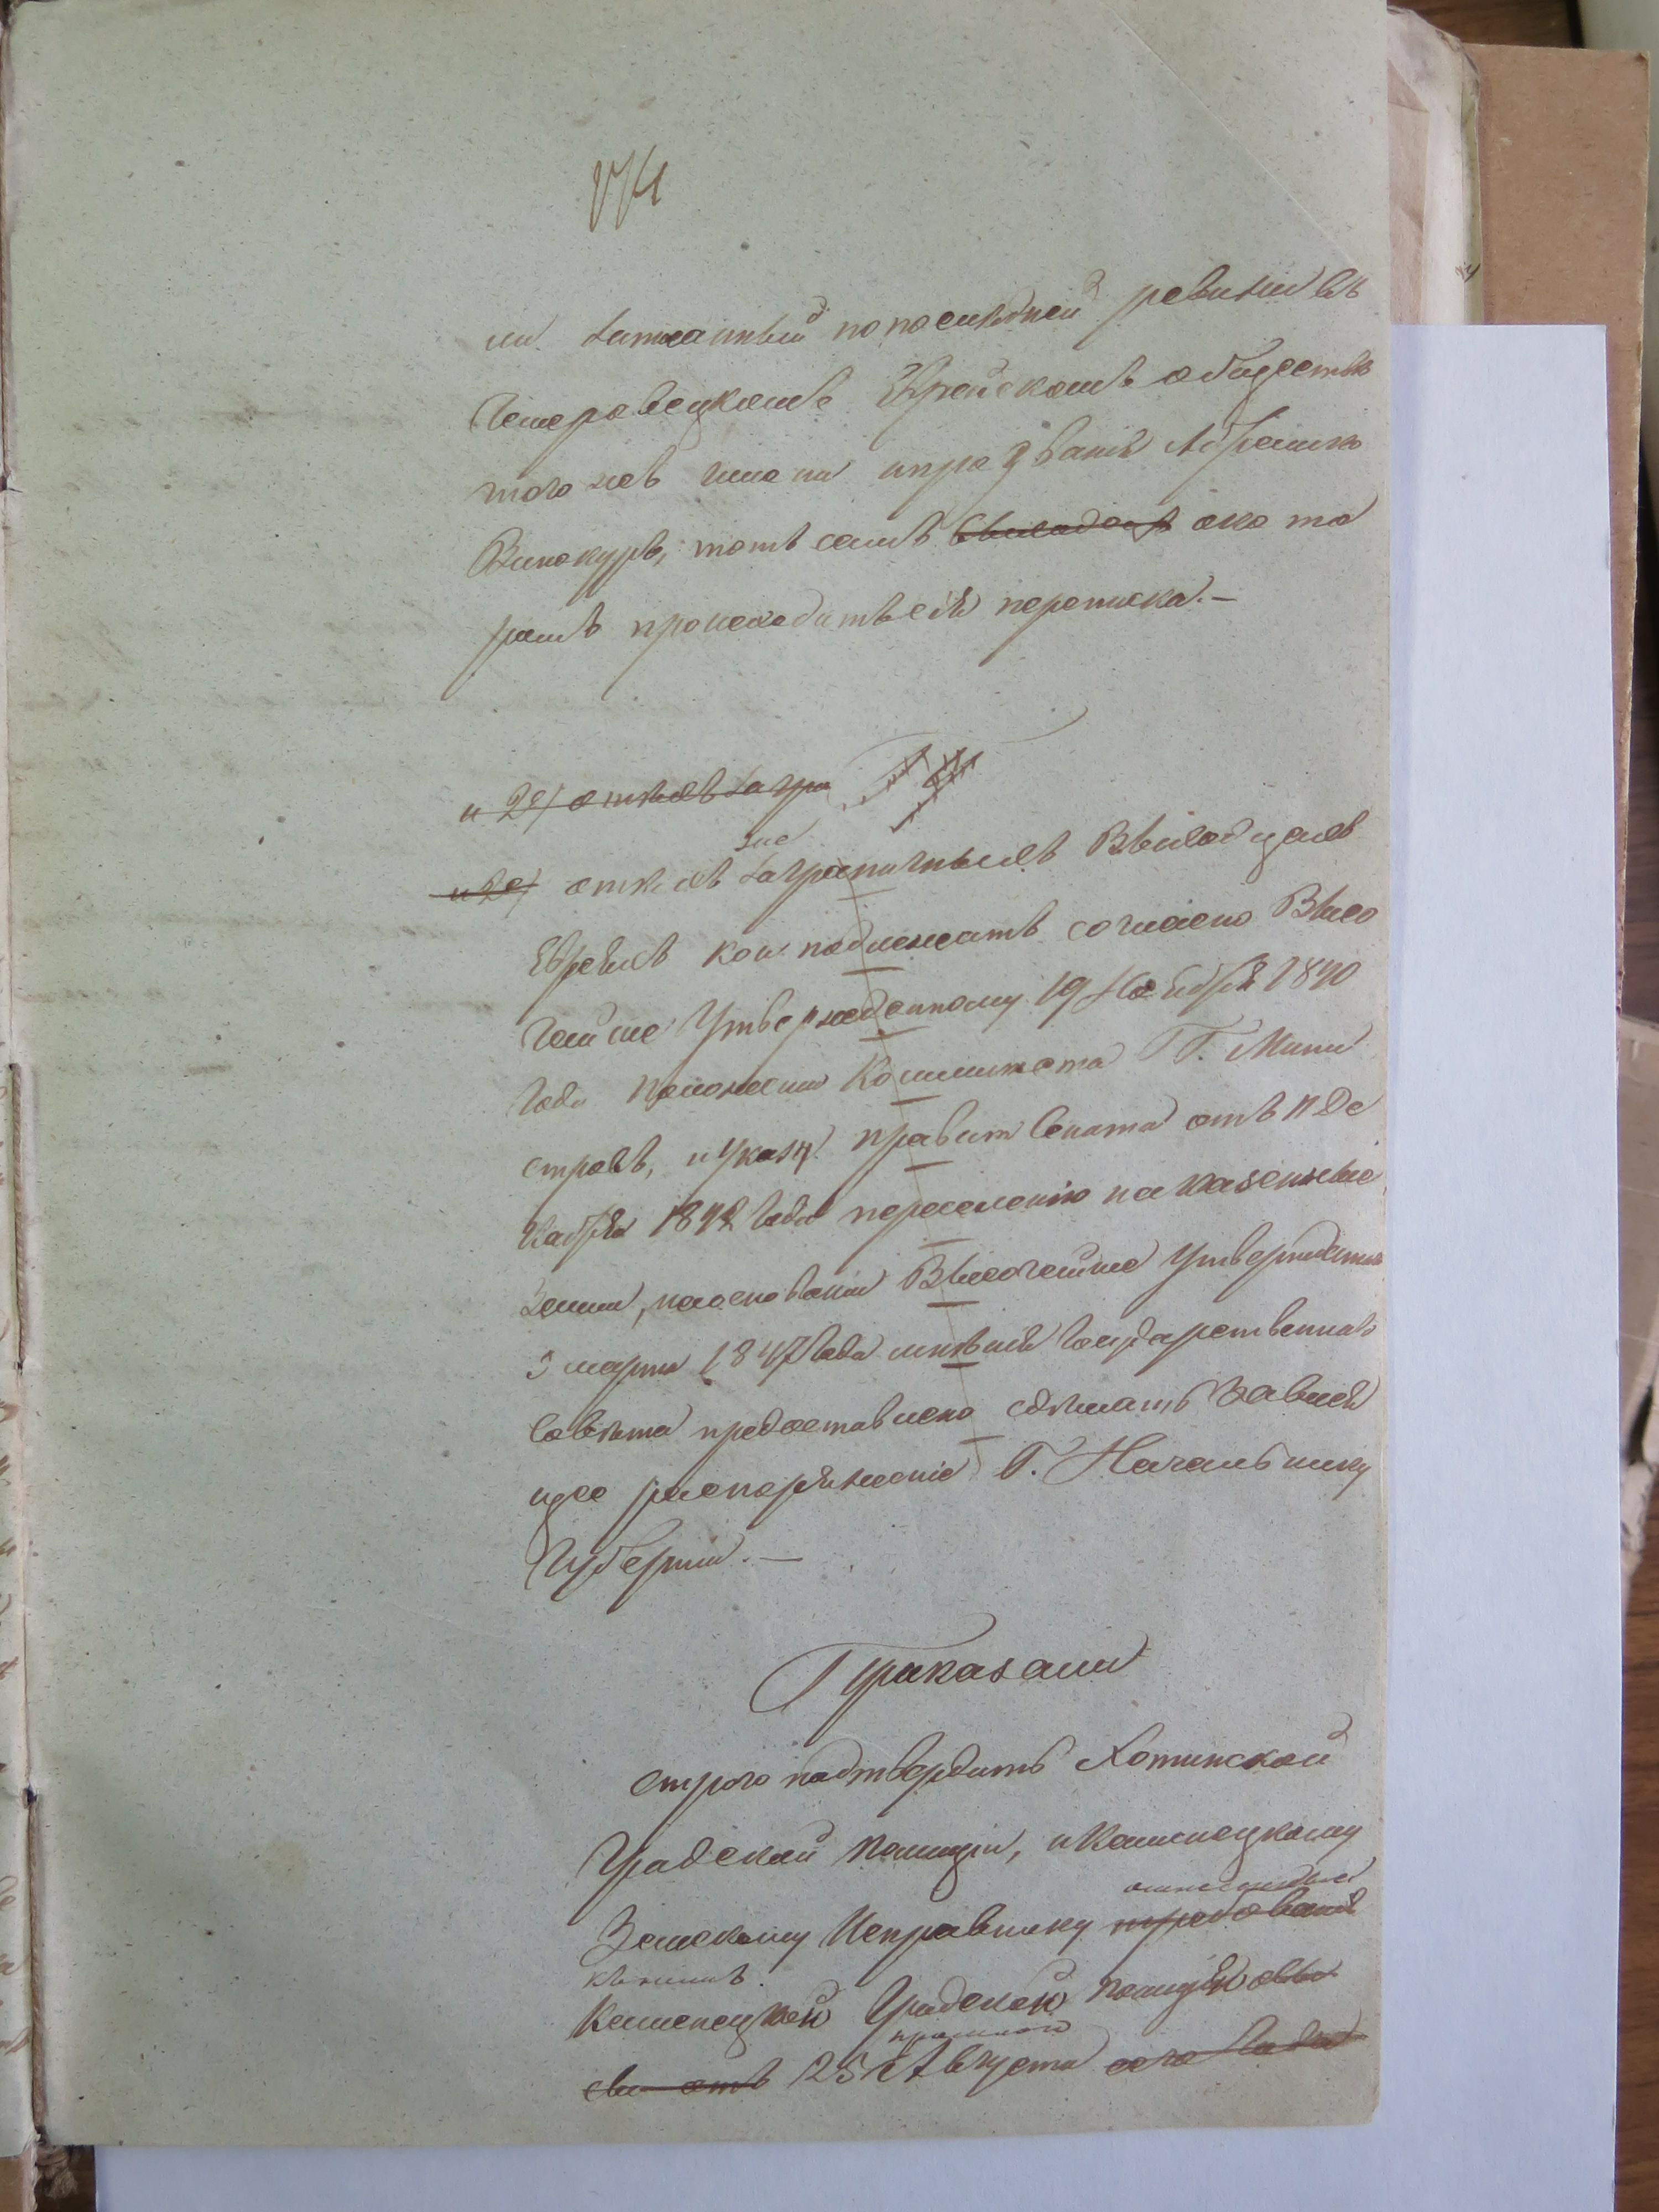 ли записанный по последней ревизии въ
Чемеровецкомъ Еврейскомъ обществѣ
того же имени и прозванія Абрамко
Винокуръ, тотъ самъ о ко то
ромъ происходитъ сія переписка.—
и 2е) о тѣхъ загра
и 2е) о тѣхъ же заграничныхъ Выходцахъ
Евреяхъ кои подлежатъ согласно Высо
чайше Утвержденному 19 Ноября 1840
года положенію Комитета Г.г. Мини
стровъ, и указу Правит Сената отъ 11 Де
кабря 184 года переселенію на казенные
Земли, на основаніи Высочайше Утвержденнаго
3 марта 1847 года мнѣнія Государственнаго
Совѣта предоставлено сдѣлать Завися
щее распоряженіе Г. Начальнику
Губерніи.—
Приказали
строго подтвердить Хотинской
Градской полиціи, и Каменецкому
Земскому Исправнику требованія
Каменецкой Градской полиціи
отъ 25 Августа сего года